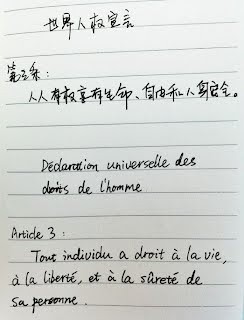 世界人权宣言
第三条:
人人有权享有生命、自由和人身安全。
Déclaration universelle des
droits de l'homme
Article 3 :
Tout individu a droit à la vie,
à la liberté, et à la sûreté de
sa personne.